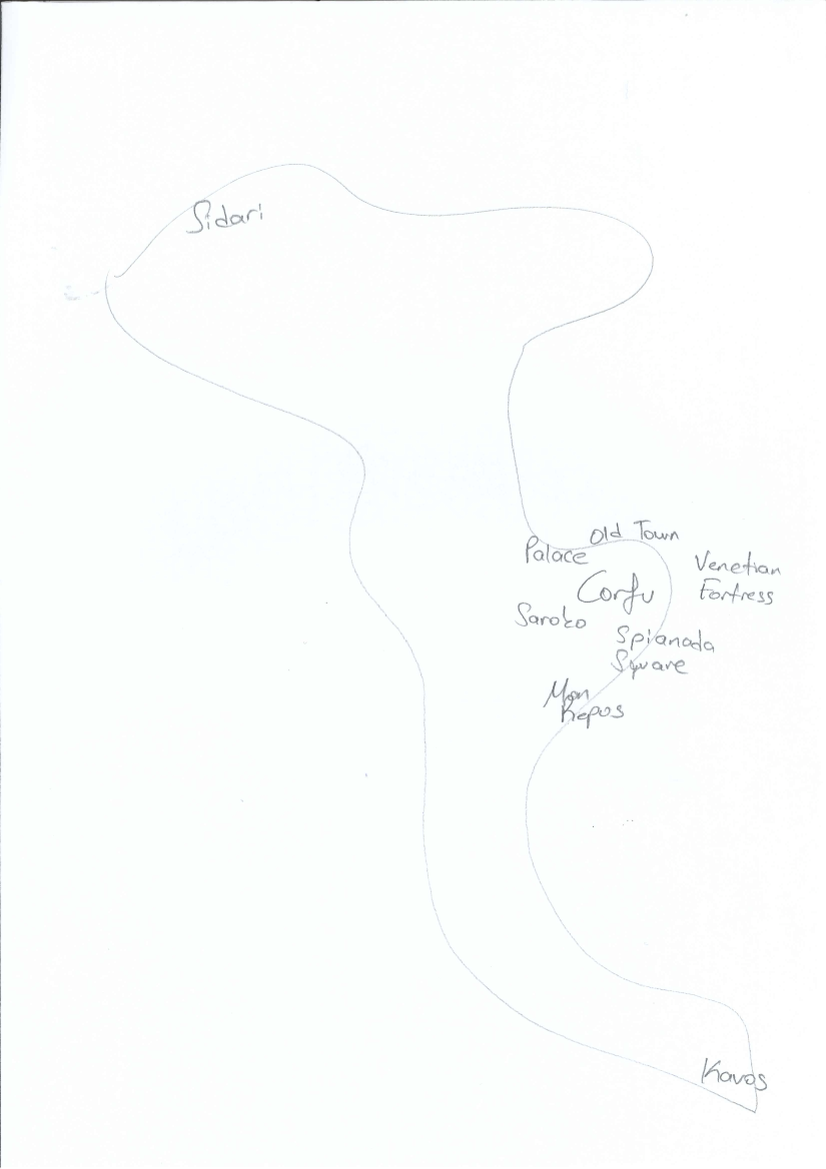 Sidari
Old Town
Palace
Venetian
Fortress
Corfu
Saroko
Spianada
Square
Mon
Repos
Kavos